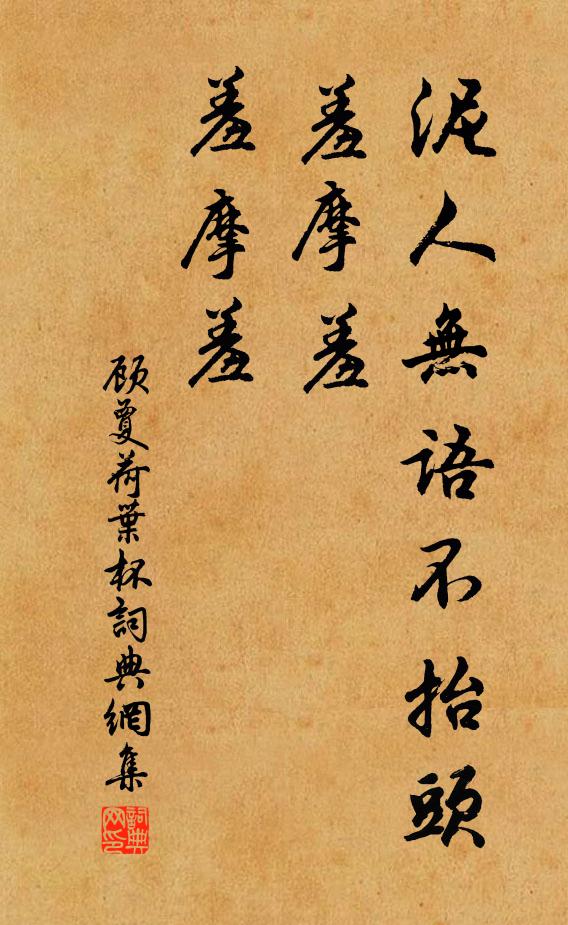 泥人無語不抬頭
羞摩羞
羞摩羞
顾夐荷葉杯詞典網集
詞典网印